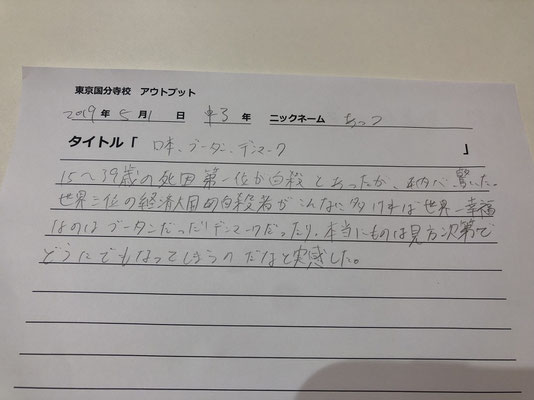 東京国分寺校 アウトプット
2019年 5月 1日 中3年 ニックネーム ちっつ
タイトル「 日本、ブータン、デンマーク 」
15〜39歳の死因第一位が自殺とあったが、納べ驚いた。
世界三位の経済大国の自殺者がこんな多ければ世界一幸福
なのはブータンだったりデンマークだったり。本当にものは見方次第で
どうにでもなってしまうのだなと実感した。